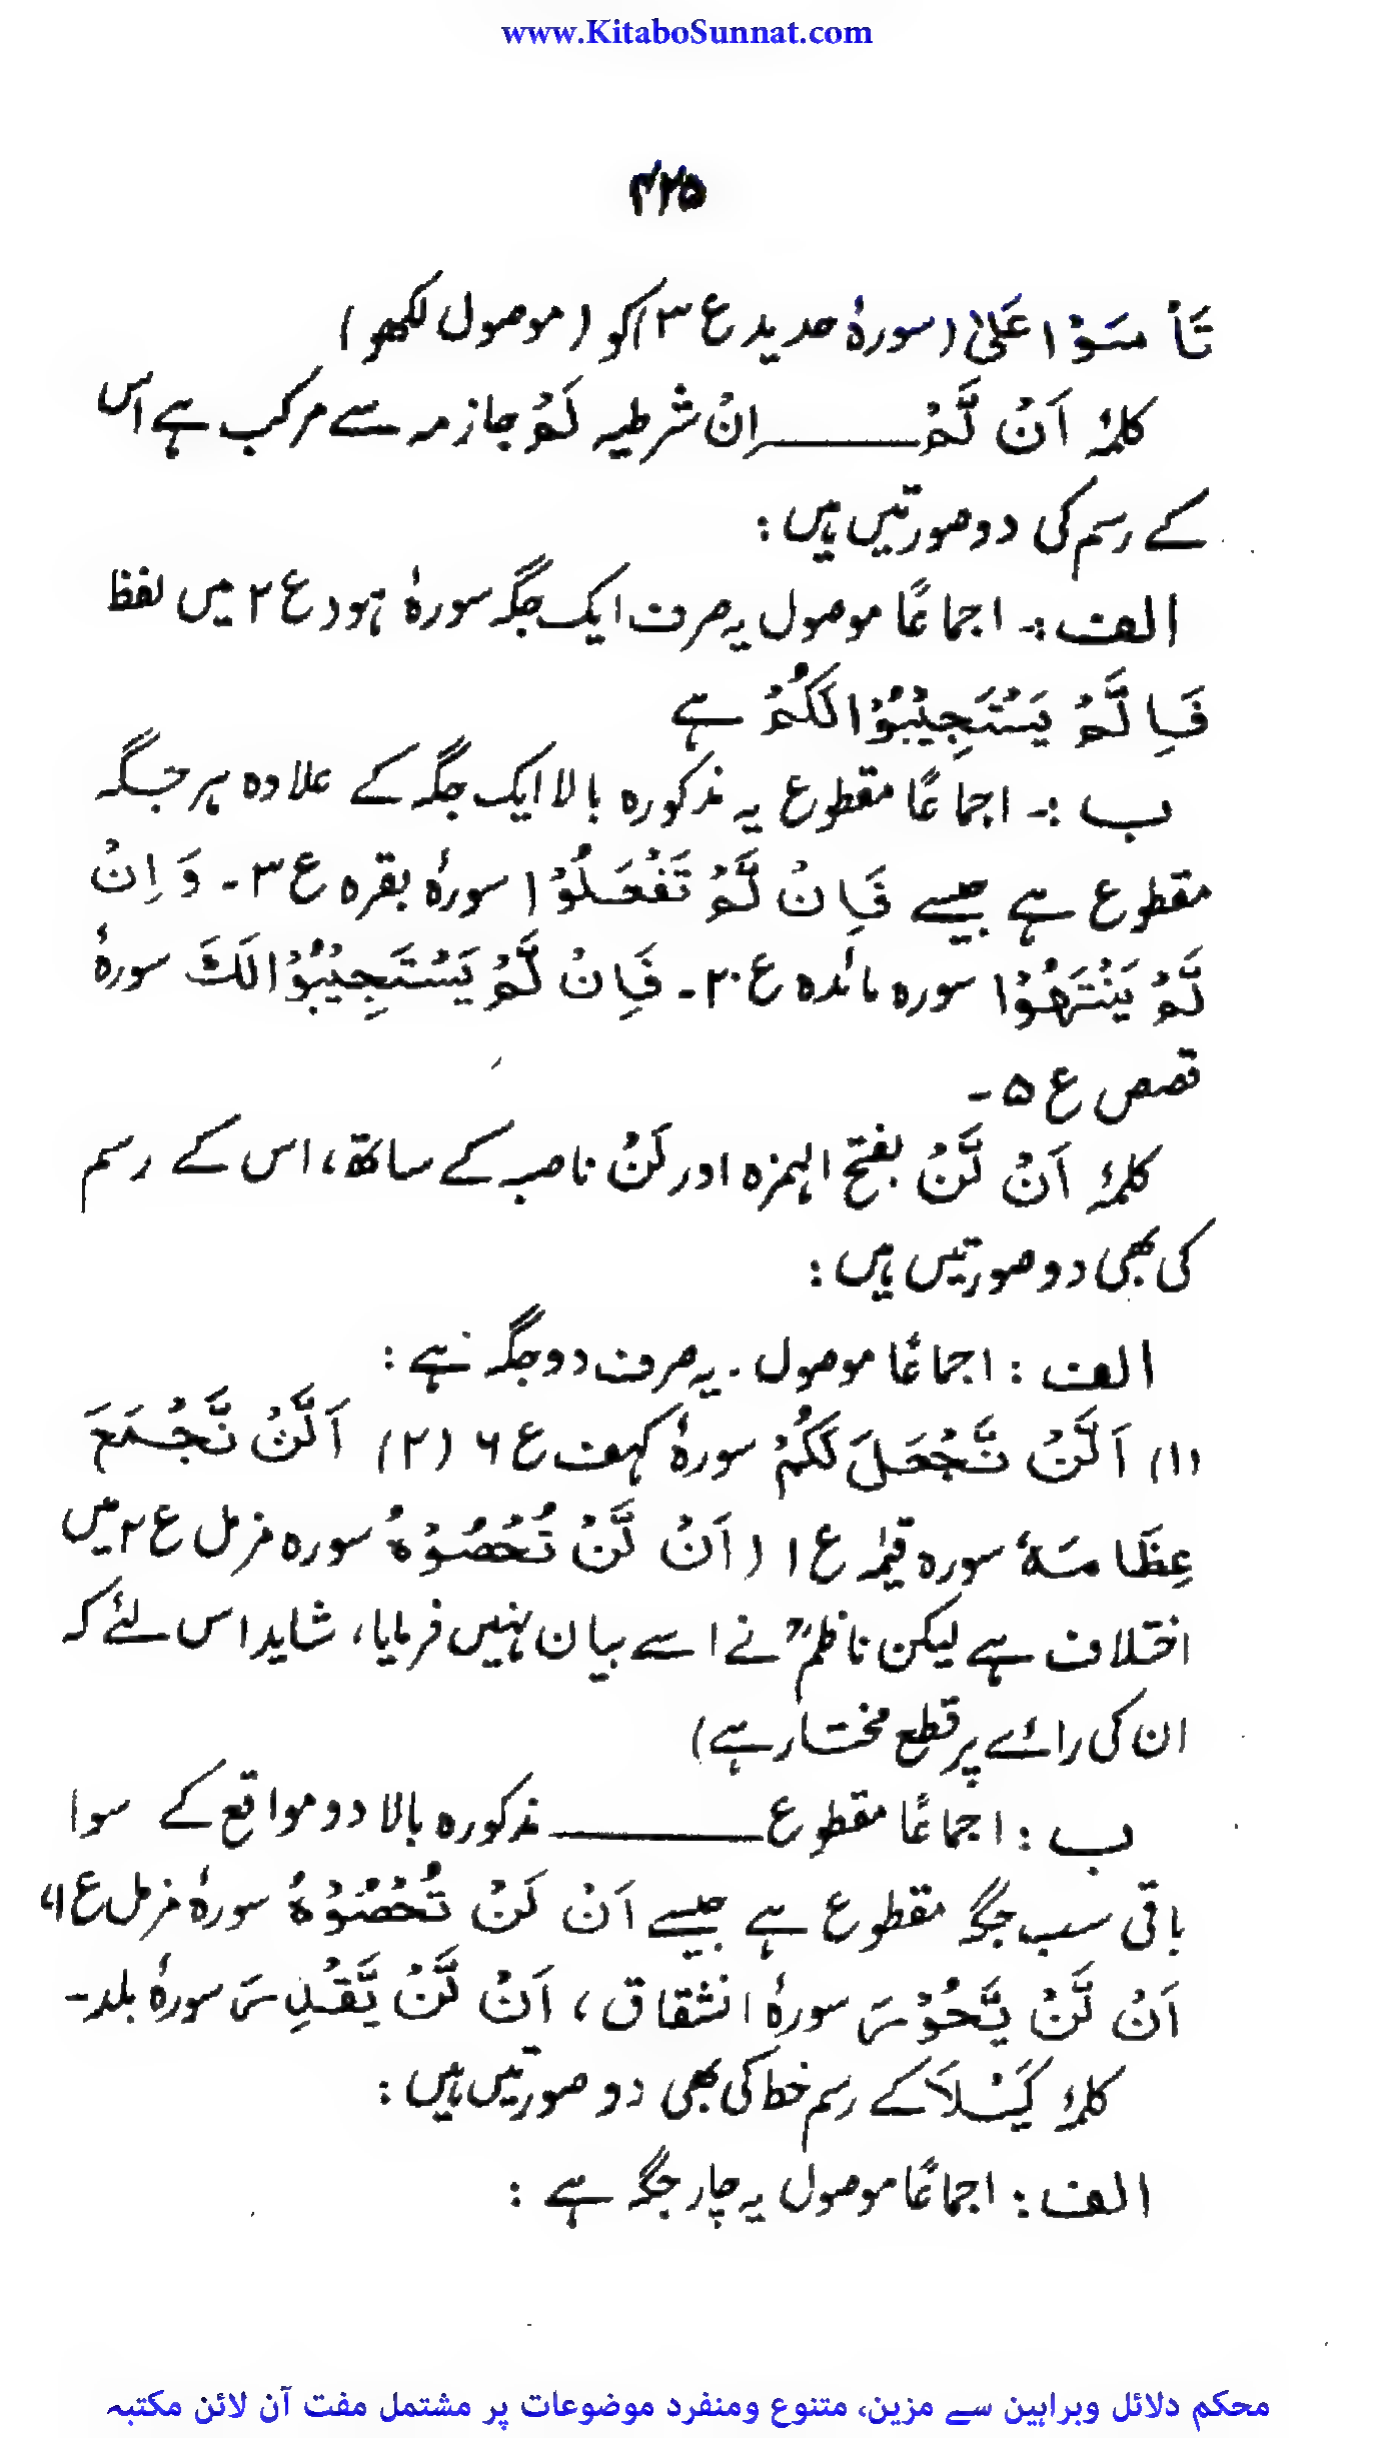 www.KitaboSunnat.com
۴۲۵
تَأْسَوْا عَلٰى (سورۂ حدید ع ۳) کو (موصول لکھو)
کلمۂ اَنْ لَّمْ ــــــ اِنْ شرطیہ لَمْ جازمہ سے مرکب ہے اس
کے رسم کی دو صورتیں ہیں :
الف :۔ اجماعًا موصول یہ صرف ایک جگہ سورۂ ہود ع ۲ میں لفظ
فَاِلَّمْ يَسْتَجِيْبُوْا لَكُمْ ہے
ب :۔ اجماعًا مقطوع یہ مذکورہ بالا ایک جگہ کے علاوہ ہر جگہ
مقطوع ہے جیسے فَاِنْ لَّمْ تَفْعَلُوْا سورۂ بقرہ ع ۳ ۔ وَ اِنْ
لَّمْ يَنْتَهُوْا سورہ مائدہ ع ۲۰ ۔ فَاِنْ لَّمْ يَسْتَجِيْبُوْا لَكَ سورۂ
قصص ع ۵ ۔
کلمۂ اَنْ لَّنْ بفتح الہمزہ اور لَنْ ناصبہ کے ساتھ، اس کے رسم
کی بھی دو صورتیں ہیں :
الف : اجماعًا موصول ۔ یہ صرف دو جگہ ہے :
(۱) اَلَّنْ نَّجْعَلَ لَكُمْ سورۂ کہف ع ۶ (۲) اَلَّنْ نَّجْمَعَ
عِظَامَهٗ سورہ قیٰمہ ع ۱ (اَنْ لَّنْ تُحْصُوْهُ سورہ مزمل ع ۲ میں
اختلاف ہے لیکن ناظمؒ نے اسے بیان نہیں فرمایا، شاید اس لئے کہ
ان کی رائے پر قطع مختار ہے)
ب : اجماعًا مقطوع ــــــ مذکورہ بالا دو مواقع کے سوا
باقی سب جگہ مقطوع ہے جیسے اَنْ لَنْ تُحْصُوْهُ سورۂ مزمل ع ۱،
اَنْ لَّنْ يَّحُوْرَ سورۂ انشقاق، اَنْ لَّنْ يَّقْدِرَ سورۂ بلد ۔
کلمۂ كَيْلَا کے رسم خط کی بھی دو صورتیں ہیں :
الف : اجماعًا موصول یہ چار جگہ ہے :
محکم دلائل وبراہین سے مزین، متنوع ومنفرد موضوعات پر مشتمل مفت آن لائن مکتبہ